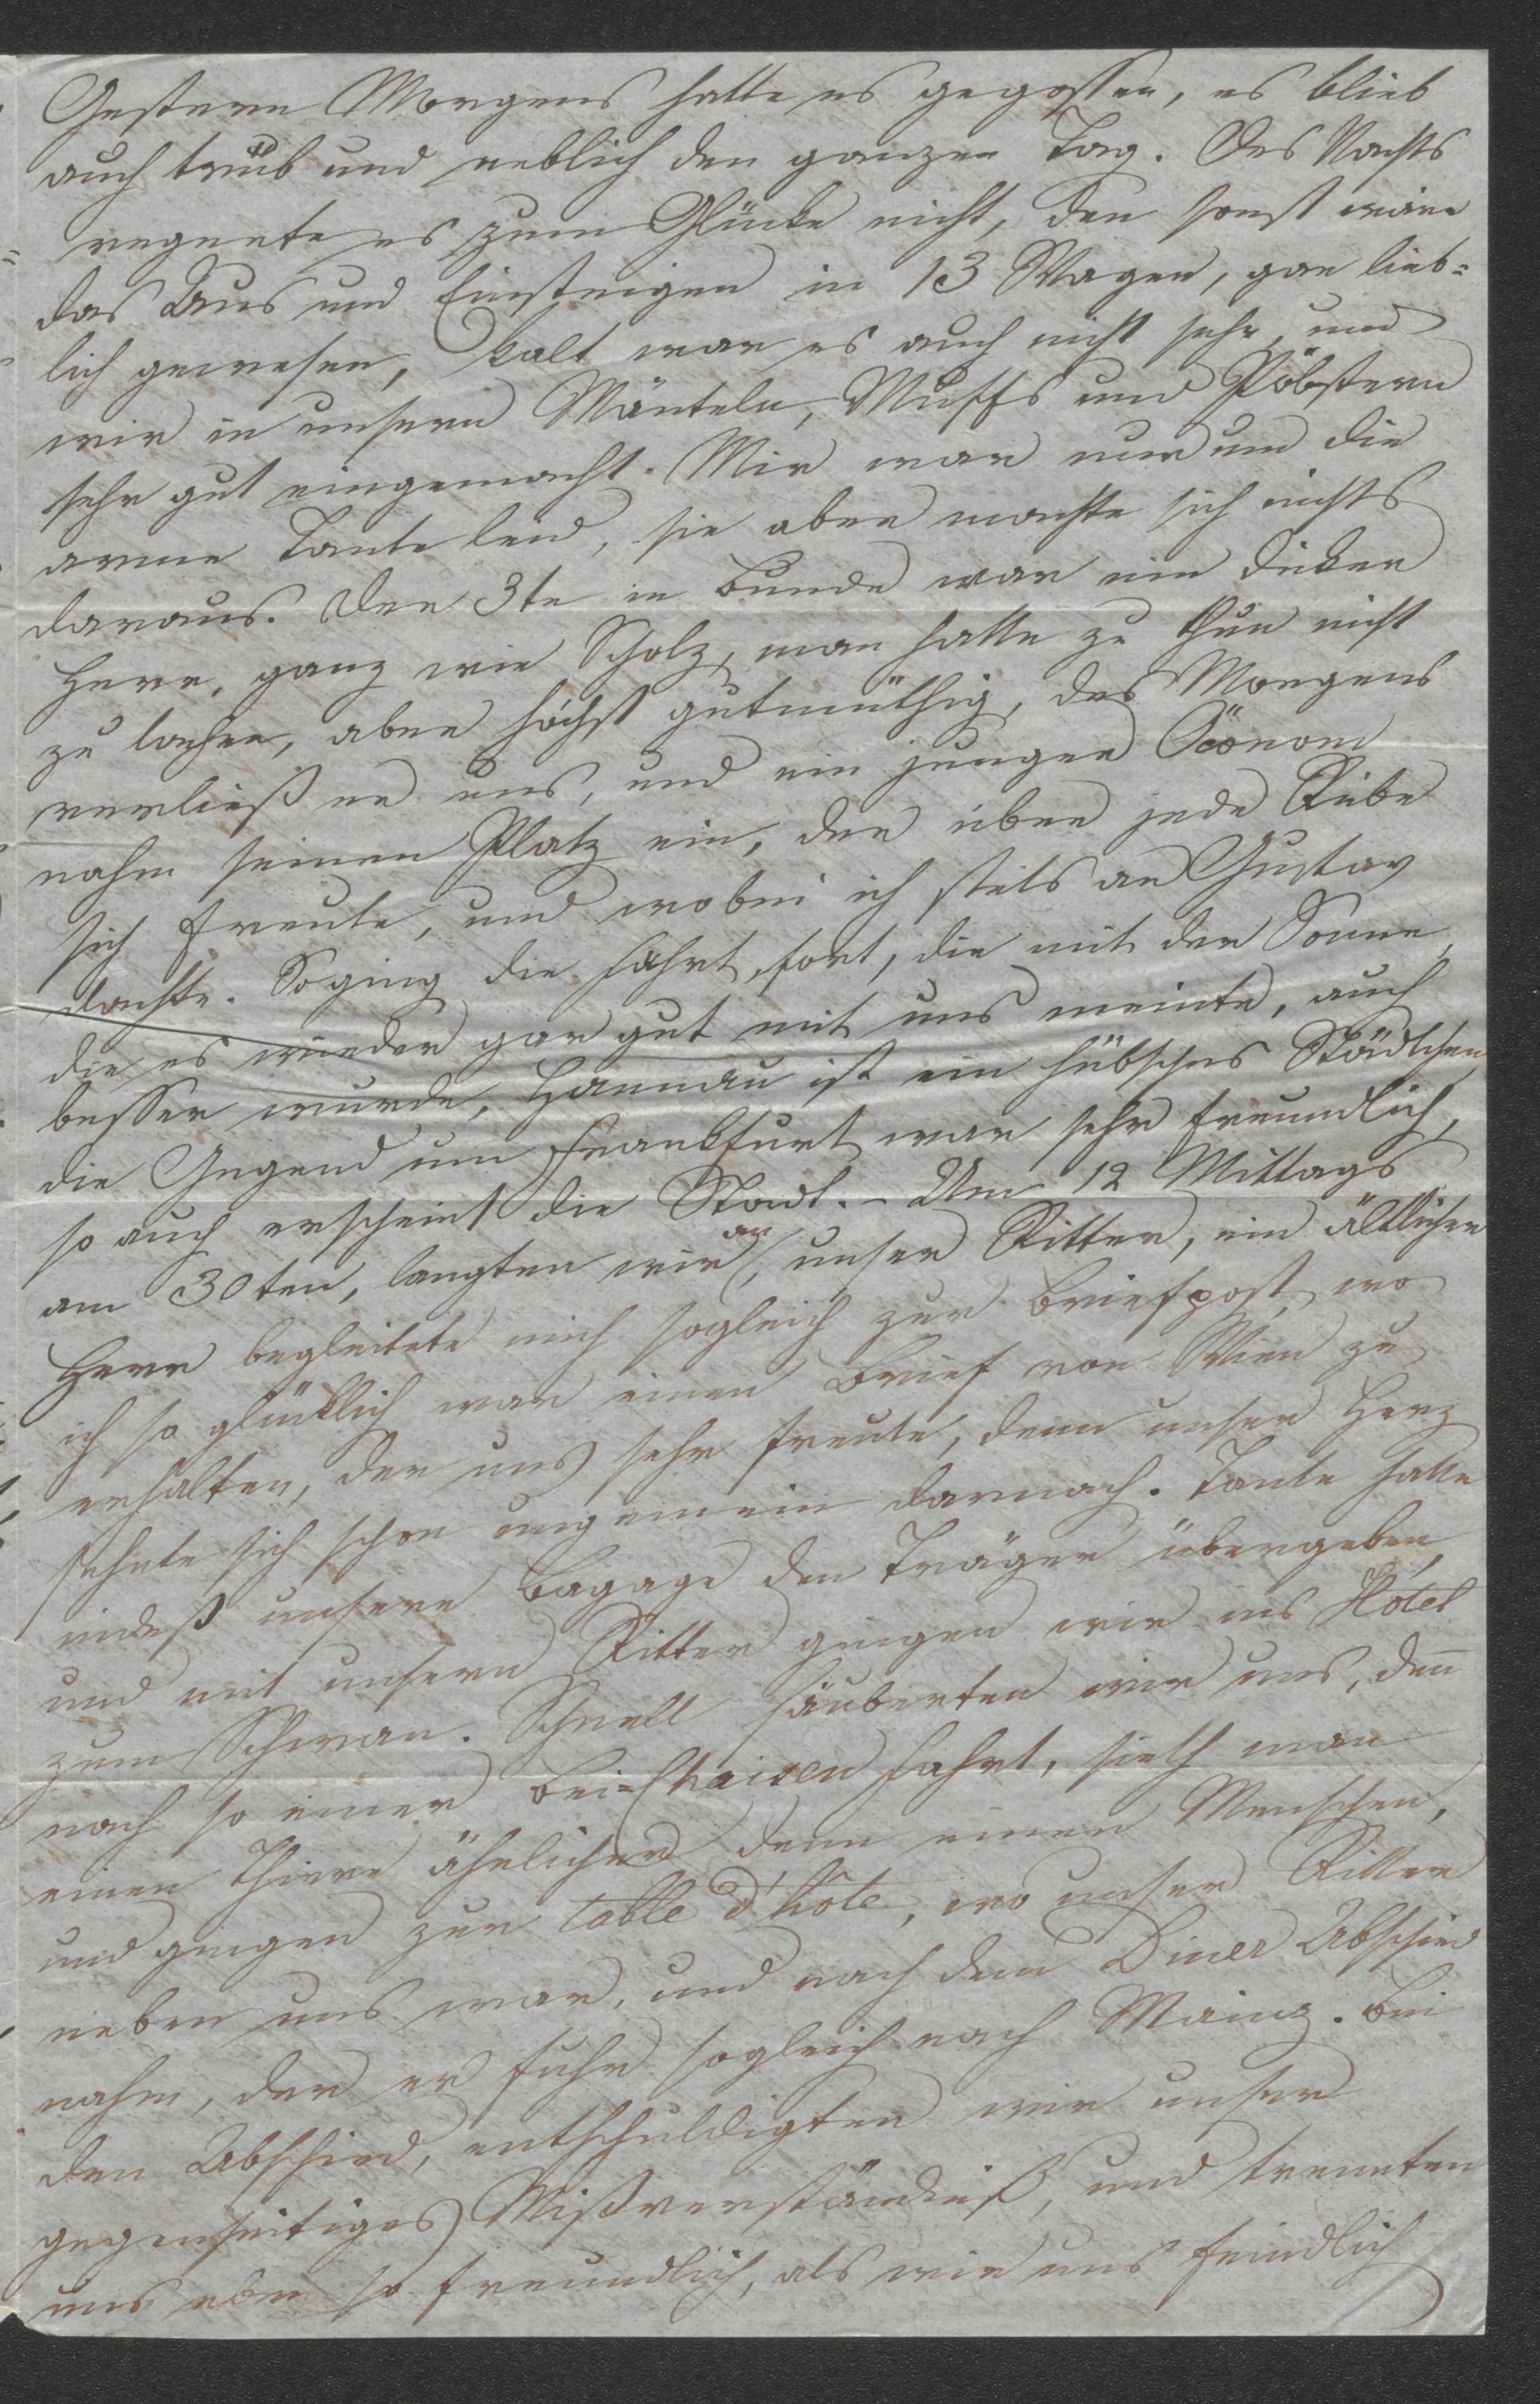 Gestern Morgens hatte es gegossen, es blieb
auch trüb und neblich den ganzen Tag. Des Nachts
regnete es zum Glücke nicht, den sonst wäre
das Aus und Einsteigen in 13 Wagen, gar lieb=
lich gewesen, kalt war es auch nicht sehr, und
wir in unsern Mänteln, Muffs und Pölstern
sehr gut eingemacht. Mir war nur um die
arme Tante leid, sie aber machte sich nichts
daraus. Der 3te in Bunde war ein dicker
Herr, ganz wie Scholz, man hatte zu thun nicht
zu lachen, aber höchst gutmüthig, des Morgens
verließ er uns, und ein junger Öconom
nahm seinen Platz ein, der über jede Rübe
sich freute, und wobei ich stets an Gustav
dachte. So ging die Fahrt, fort, die mit der Sonne,
die es wieder gar gut mit uns meinte, auch
besser wurde, Hannau ist ein hübsches Städtchen,
die Gegend um Frankfurt war sehr freundlich,
so auch erscheint die Stadt. – Um 12 Mittags
am 30ten, langten wir an, unser Ritter, ein ältlicher
Herr begleitete mich sogleich zur Briefpost, wo
ich so glücklich war einen Brief von Wien zu
erhalten, der uns sehr freute, denn unser Herz
sehnte sich schon ungemein darnach. Tante hatte
indeß unsere Bagage den Träger übergeben,
und mit unsern Ritter gingen wir ins Hôtel
zum Schwan. Schnell säuberten wir uns, den̄
nach so einer Bei=Chaisen Fahrt, sieth man
einen Thiere ähnlicher denn einen Menschen,
und gingen zur table d'hôte, wo unser Ritter
neben uns war, und nach dem Diner Abschied
nahm, den er fuhr sogleich nach Mainz. Bei
den Abschied, entschuldigten wir unser
gegenseitiges Mißverständniß, und trennten
uns eben so freundlich, als wir uns feindlich